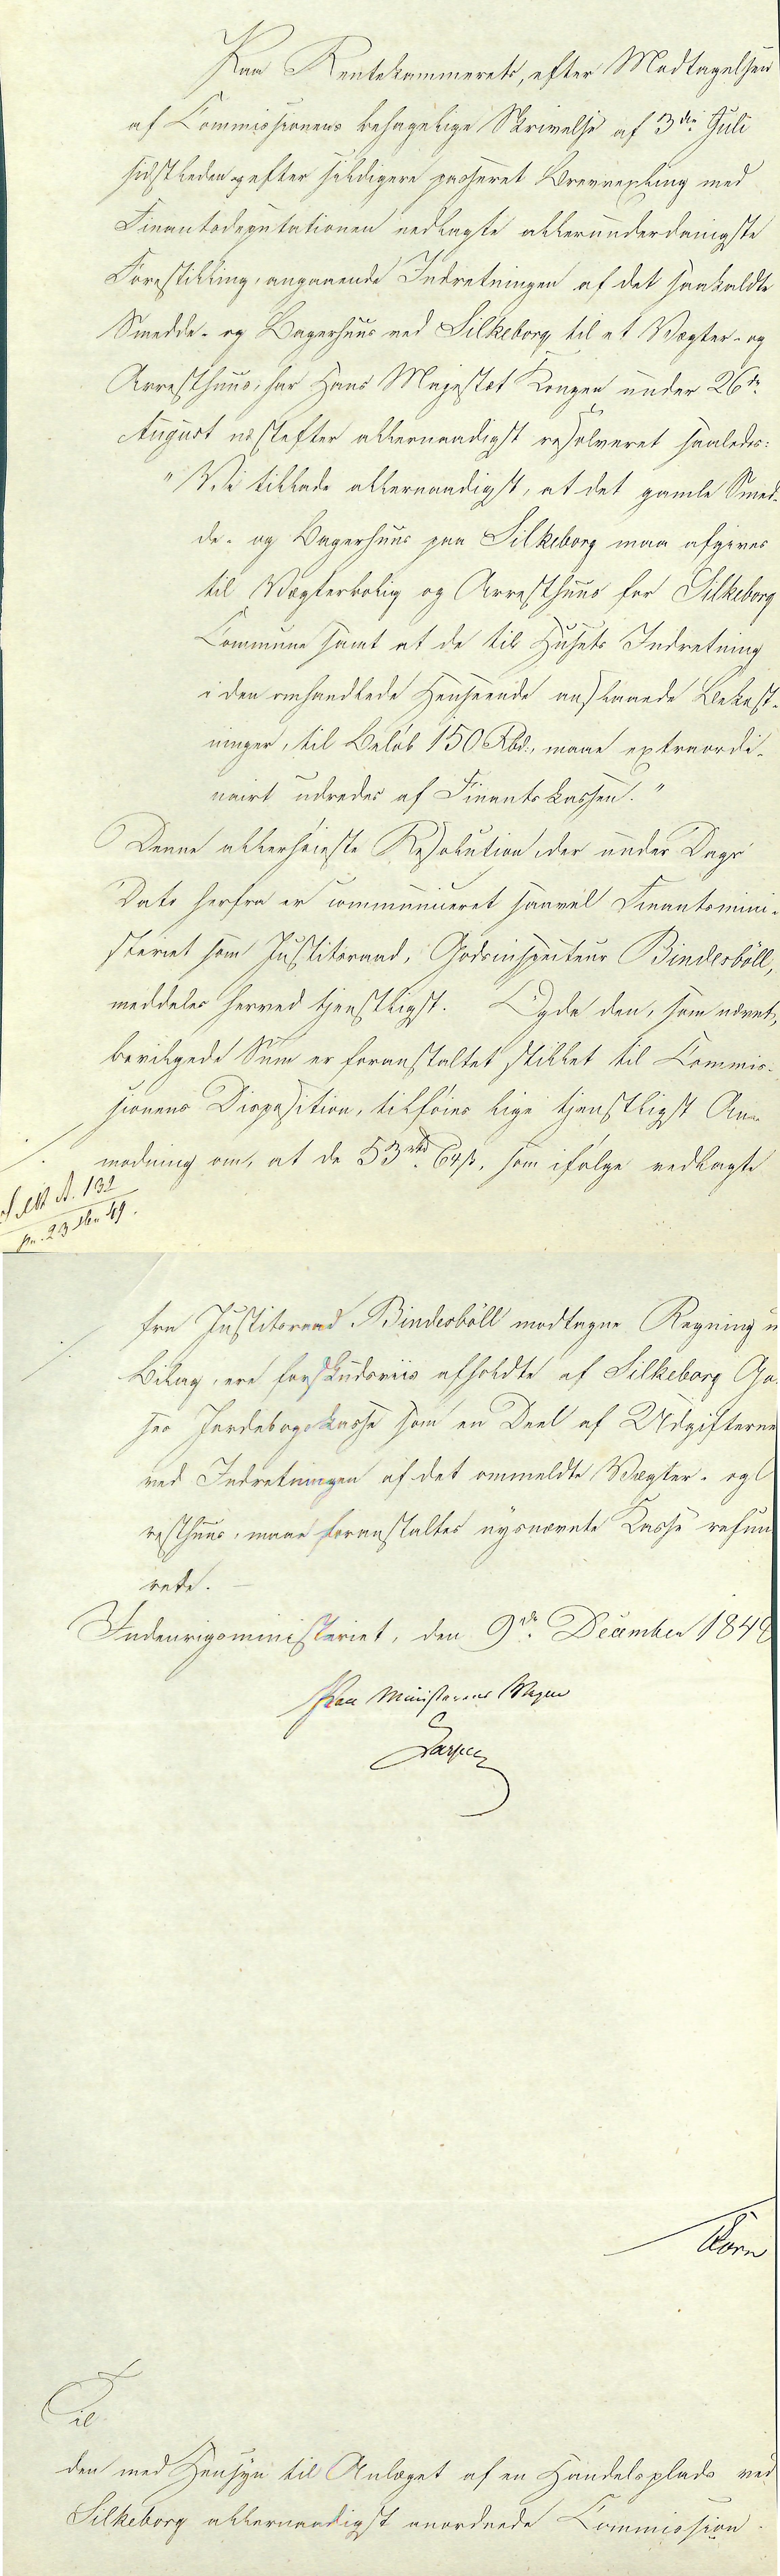 Paa Rentekammerets, efter Modtagelsen
af Commissionens behagelige Skrivelse af 3die Juli
sidstleden og efter sildigere passeret Brevvexling med
Finantsdeputationen nedlagte allerunderdanigste
Forestilling, angaaende Indretningen af det saakaldte
Smedde- og Bagerhuus ved Silkeborg til et Vægter- og
Arresthuus, har Hans Majestæt Kongen under 26de
August næstefter allernaadigst resolveret saaledes:
"Vi tillade allernaadigst, at det gamle Smed-
de- og Bagerhuus paa Silkeborg maa afgives
til Vægterbolig og Arresthuus for Silkeborg
Commune samt at de til Husets Indretning
i den omhandlede Henseende anslaaede Bekost-
ninger, til Beløb 150 Rbd., maae extraordi-
nairt udredes af Finantskassen."
Denne allerhøieste Resolution, der under Dags
Dato herfra er communiceret saavel Finantsmini-
steriet som Justitsraad, Godsinspecteur Bindesböll,
meddeles herved tjenstligst. Og da den, som nævnt,
bevilgede Sum er foranstaltet stillet til Commis-
sionens Disposition, tilføies lige tjenstligst An-
modning om, at de 53 rbd 64 ß, som ifølge vedlagte
A. 132
pr. 23 49.
fra Justitsraad Bindesböll modtagne Regning m
Bilag, ere forskudsviis afholdte af Silkeborg Go-
ses Jordebogskasse som en Deel af Udgifterne
ved Indretningen af det ommeldte Vægter- og
resthuus, maae foranstaltes nysnævnte Kasse refun
rede.
Indenrigsministeriet, den 9de December 1848
Paa Ministerens Vegne
Til
den med Hensyn til Anlæget af en Handelsplads ved
Silkeborg allernaadigst anordnede Commission.